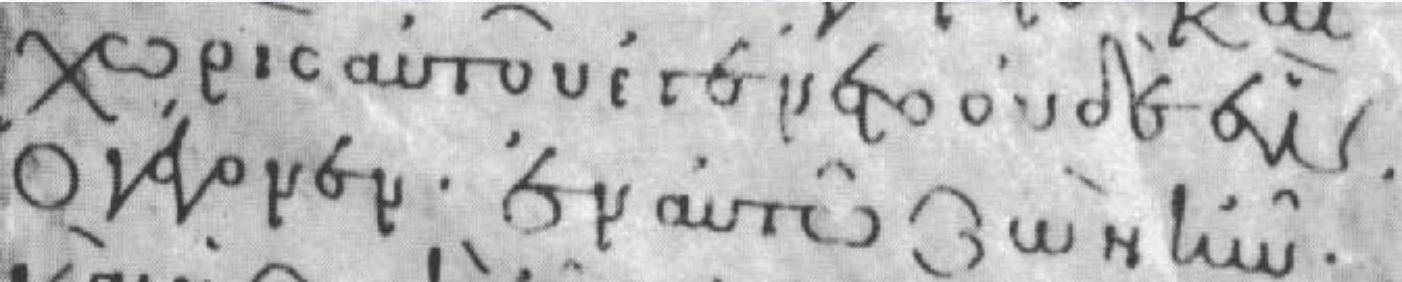 καὶ
χωρὶς αὐτοῦ ἐγένετο οὐδὲ ἕν.
ὃ γέγονεν· ἐν αὐτῶ ζωὴ ἦν·